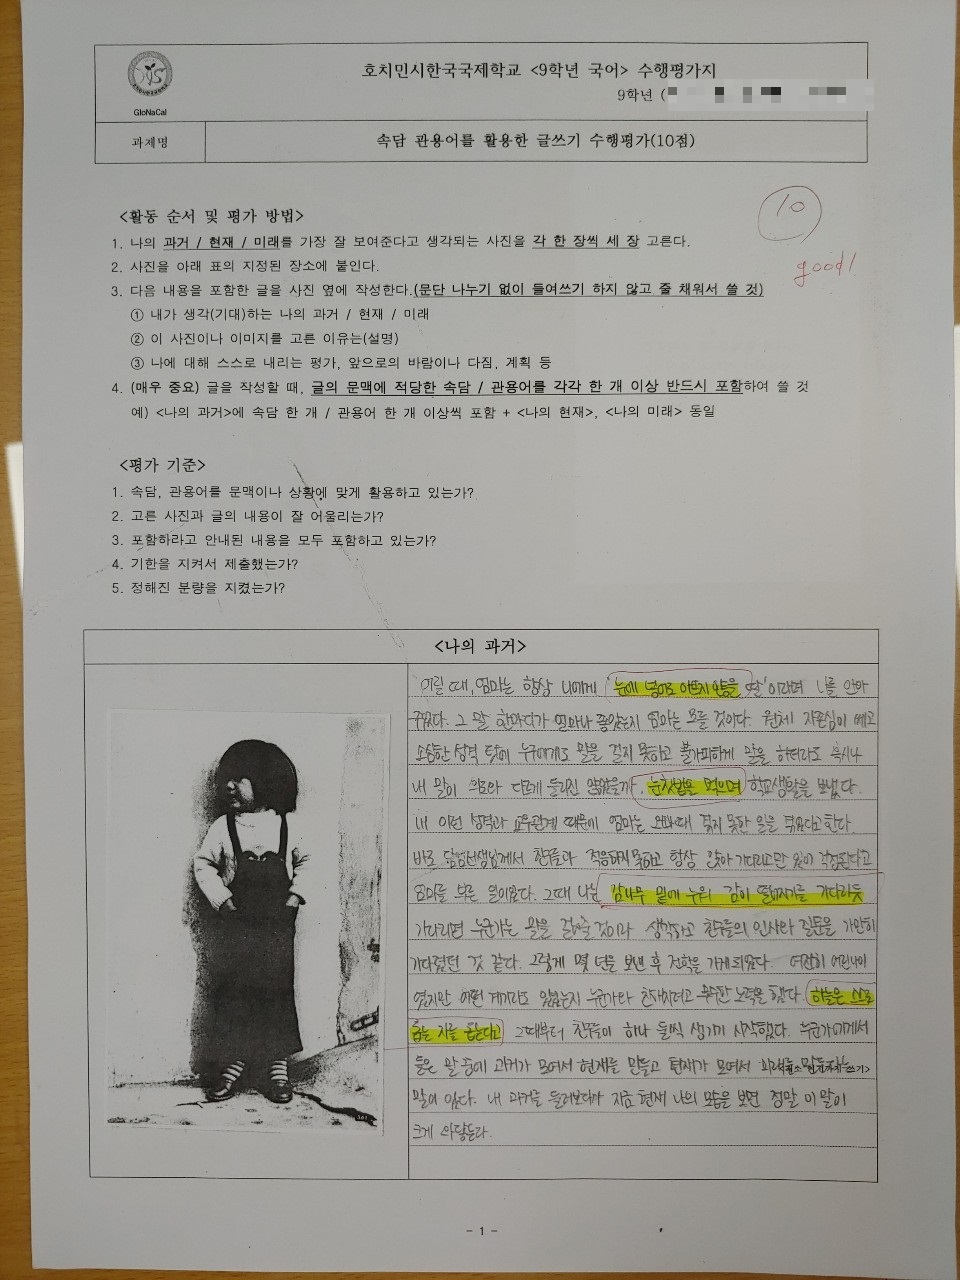 호치민시한국국제학교 <9학년 국어> 수행평가지
9학년 (
GloNaCal
과제명
속담 관용어를 활용한 글쓰기 수행평가(10점)
10
good!
<활동 순서 및 평가 방법>
1. 나의 과거 / 현재 / 미래를 가장 잘 보여준다고 생각되는 사진을 각 한 장씩 세 장 고른다.
2. 사진을 아래 표의 지정된 장소에 붙인다.
3. 다음 내용을 포함한 글을 사진 옆에 작성한다.(문단 나누기 없이 들여쓰기 하지 않고 줄 채워서 쓸 것)
① 내가 생각(기대)하는 나의 과거 / 현재 / 미래
② 이 사진이나 이미지를 고른 이유는(설명)
③ 나에 대해 스스로 내리는 평가, 앞으로의 바람이나 다짐, 계획 등
4. (매우 중요) 글을 작성할 때, 글의 문맥에 적당한 속담 / 관용어를 각각 한 개 이상 반드시 포함하여 쓸 것
예) <나의 과거>에 속담 한 개 / 관용어 한 개 이상씩 포함 + <나의 현재>, <나의 미래> 동일
<평가 기준>
1. 속담, 관용어를 문맥이나 상황에 맞게 활용하고 있는가?
2. 고른 사진과 글의 내용이 잘 어울리는가?
3. 포함하라고 안내된 내용을 모두 포함하고 있는가?
4. 기한을 지켜서 제출했는가?
5. 정해진 분량을 지켰는가?
<나의 과거>
어릴 때, 엄마는 항상 나에게 '눈에 넣어도 아프지 않을 딸'이라며 나를 안아
주었다. 그 말 한마디가 얼마나 좋았는지 엄마는 모를 것이다. 원체 자존심이 세고
소심한 성격 탓에 누구에게도 말을 걸지 못하고 불가피하게 말을 하더라도 혹시나
내 말이 의도와 다르게 들리진 않았을까, 눈칫밥을 먹으며 학교생활을 보냈다.
내 이런 성격과 교우관계 때문에 엄마는 오빠때 겪지 못한 일을 겪었다고 한다.
바로 담임선생님께서 친구들과 적응하지 못하고 항상 앉아 기다리고만 있어 걱정된다고
엄마를 부른 일이었다. 그때 나는 감나무 밑에 누워 감이 떨어지기를 기다리듯
기다리면 누군가는 말을 걸어줄 것이라 생각하고 친구들의 인사와 질문을 가만히
기다렸던 것 같다. 그렇게 몇 년을 보낸 후 전학을 가게 되었다. 여전히 어린나이
였지만 어떤 계기라도 있었는지 누군가와 친해지려고 부단한 노력을 했다. 하늘은 스스로
돕는 자를 돕는다고 그때부터 친구들이 하나 둘씩 생기기 시작했다. 누군가에게서
들은 말 중에 과거가 모여서 현재를 만들고 현재가 모여서 미래를
말이 있다. 내 과거를 돌려보다가 지금 현재 나의 모습을 보면 정말 이 말이
크게 와닿는다.
- 1 -